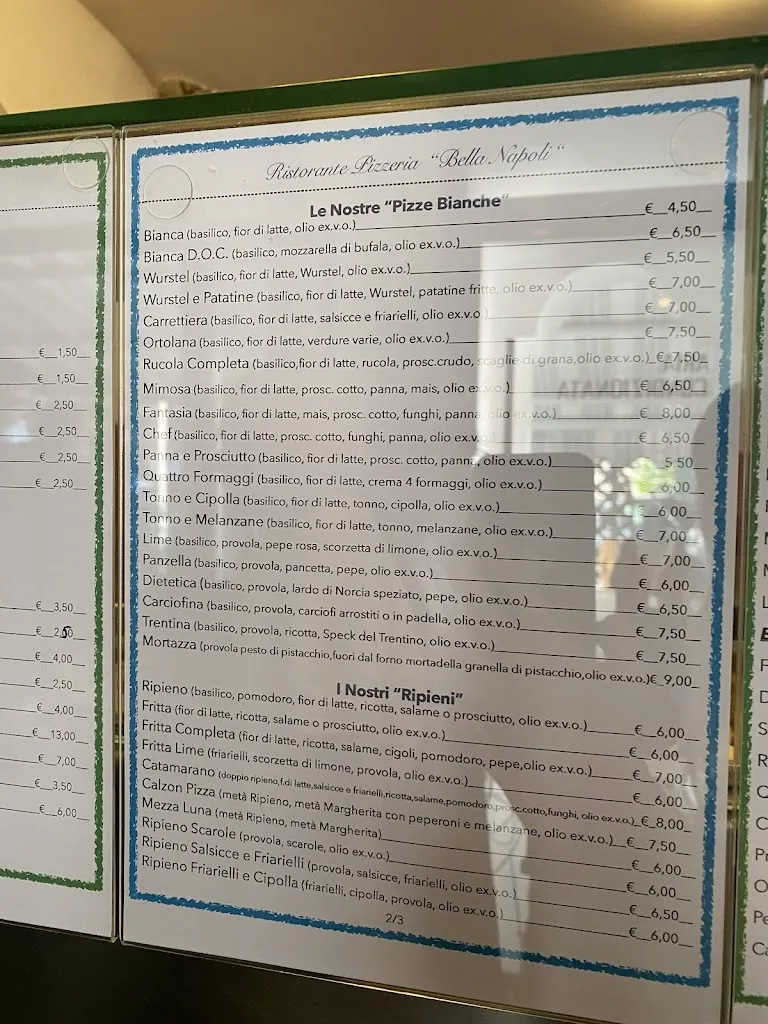 €__1,50__
€__1,50__
€__2,50__
€__2,50__
€__2,50__
€__2,50__
€__3,50__
€__2,50__
€__4,00__
€__2,50__
€__4,00__
€__13,00__
€__7,00__
€__3,50__
€__6,00__
Ristorante Pizzeria "Bella Napoli"
Le Nostre "Pizze Bianche"
Bianca (basilico, fior di latte, olio ex.v.o.) €__4,50__
Bianca D.O.C. (basilico, mozzarella di bufala, olio ex.v.o.) €__6,50__
Wurstel (basilico, fior di latte, Wurstel, olio ex.v.o.) €__5,50__
Wurstel e Patatine (basilico, fior di latte, Wurstel, patatine fritte, olio ex.v.o.) €__7,00__
Carrettiera (basilico, fior di latte, salsicce e friarielli, olio ex.v.o.) €__7,00__
Ortolana (basilico, fior di latte, verdure varie, olio ex.v.o.) €__7,50__
Rucola Completa (basilico,fior di latte, rucola, prosc.crudo, scaglie di grana,olio ex.v.o.)_€_7,50__
Mimosa (basilico, fior di latte, prosc. cotto, panna, mais, olio ex.v.o.) €__6,50__
Fantasia (basilico, fior di latte, mais, prosc. cotto, funghi, panna, olio ex.v.o.) €__8,00__
Chef (basilico, fior di latte, prosc. cotto, funghi, panna, olio ex.v.o.) €__6,50__
Panna e Prosciutto (basilico, fior di latte, prosc. cotto, panna, olio ex.v.o.) €__5,50__
Quattro Formaggi (basilico, fior di latte, crema 4 formaggi, olio ex.v.o.) €__6,00__
Tonno e Cipolla (basilico, fior di latte, tonno, cipolla, olio ex.v.o.) €__6,00__
Tonno e Melanzane (basilico, fior di latte, tonno, melanzane, olio ex.v.o.) €__7,00__
Lime (basilico, provola, pepe rosa, scorzetta di limone, olio ex.v.o.) €__7,00__
Panzella (basilico, provola, pancetta, pepe, olio ex.v.o.) €__6,00__
Dietetica (basilico, provola, lardo di Norcia speziato, pepe, olio ex.v.o.) €__6,50__
Carciofina (basilico, provola, carciofi arrostiti o in padella, olio ex.v.o.) €__7,50__
Trentina (basilico, provola, ricotta, Speck del Trentino, olio ex.v.o.) €__7,50__
Mortazza (provola pesto di pistacchio,fuori dal forno mortadella granella di pistacchio,olio ex.v.o.)€_9,00_
I Nostri "Ripieni"
Ripieno (basilico, pomodoro, fior di latte, ricotta, salame o prosciutto, olio ex.v.o.) €__6,00__
Fritta (fior di latte, ricotta, salame o prosciutto, olio ex.v.o.) €__6,00__
Fritta Completa (fior di latte, ricotta, salame, cigoli, pomodoro, pepe,olio ex.v.o.) €__7,00__
Fritta Lime (friarielli, scorzetta di limone, provola, olio ex.v.o.) €__6,00__
Catamarano (doppio ripieno,f.di latte,salsicce e friarielli,ricotta,salame,pomodoro,prosc.cotto,funghi, olio ex.v.o.)_€_8,00_
Calzon Pizza (metà Ripieno, metà Margherita con peperoni e melanzane, olio ex.v.o.)__€__7,50__
Mezza Luna (metà Ripieno, metà Margherita) €__6,00__
Ripieno Scarole (provola, scarole, olio ex.v.o.) €__6,00__
Ripieno Salsicce e Friarielli (provola, salsicce, friarielli, olio ex.v.o.) €__6,50__
Ripieno Friarielli e Cipolla (friarielli, cipolla, provola, olio ex.v.o.) €__6,00__
2/3